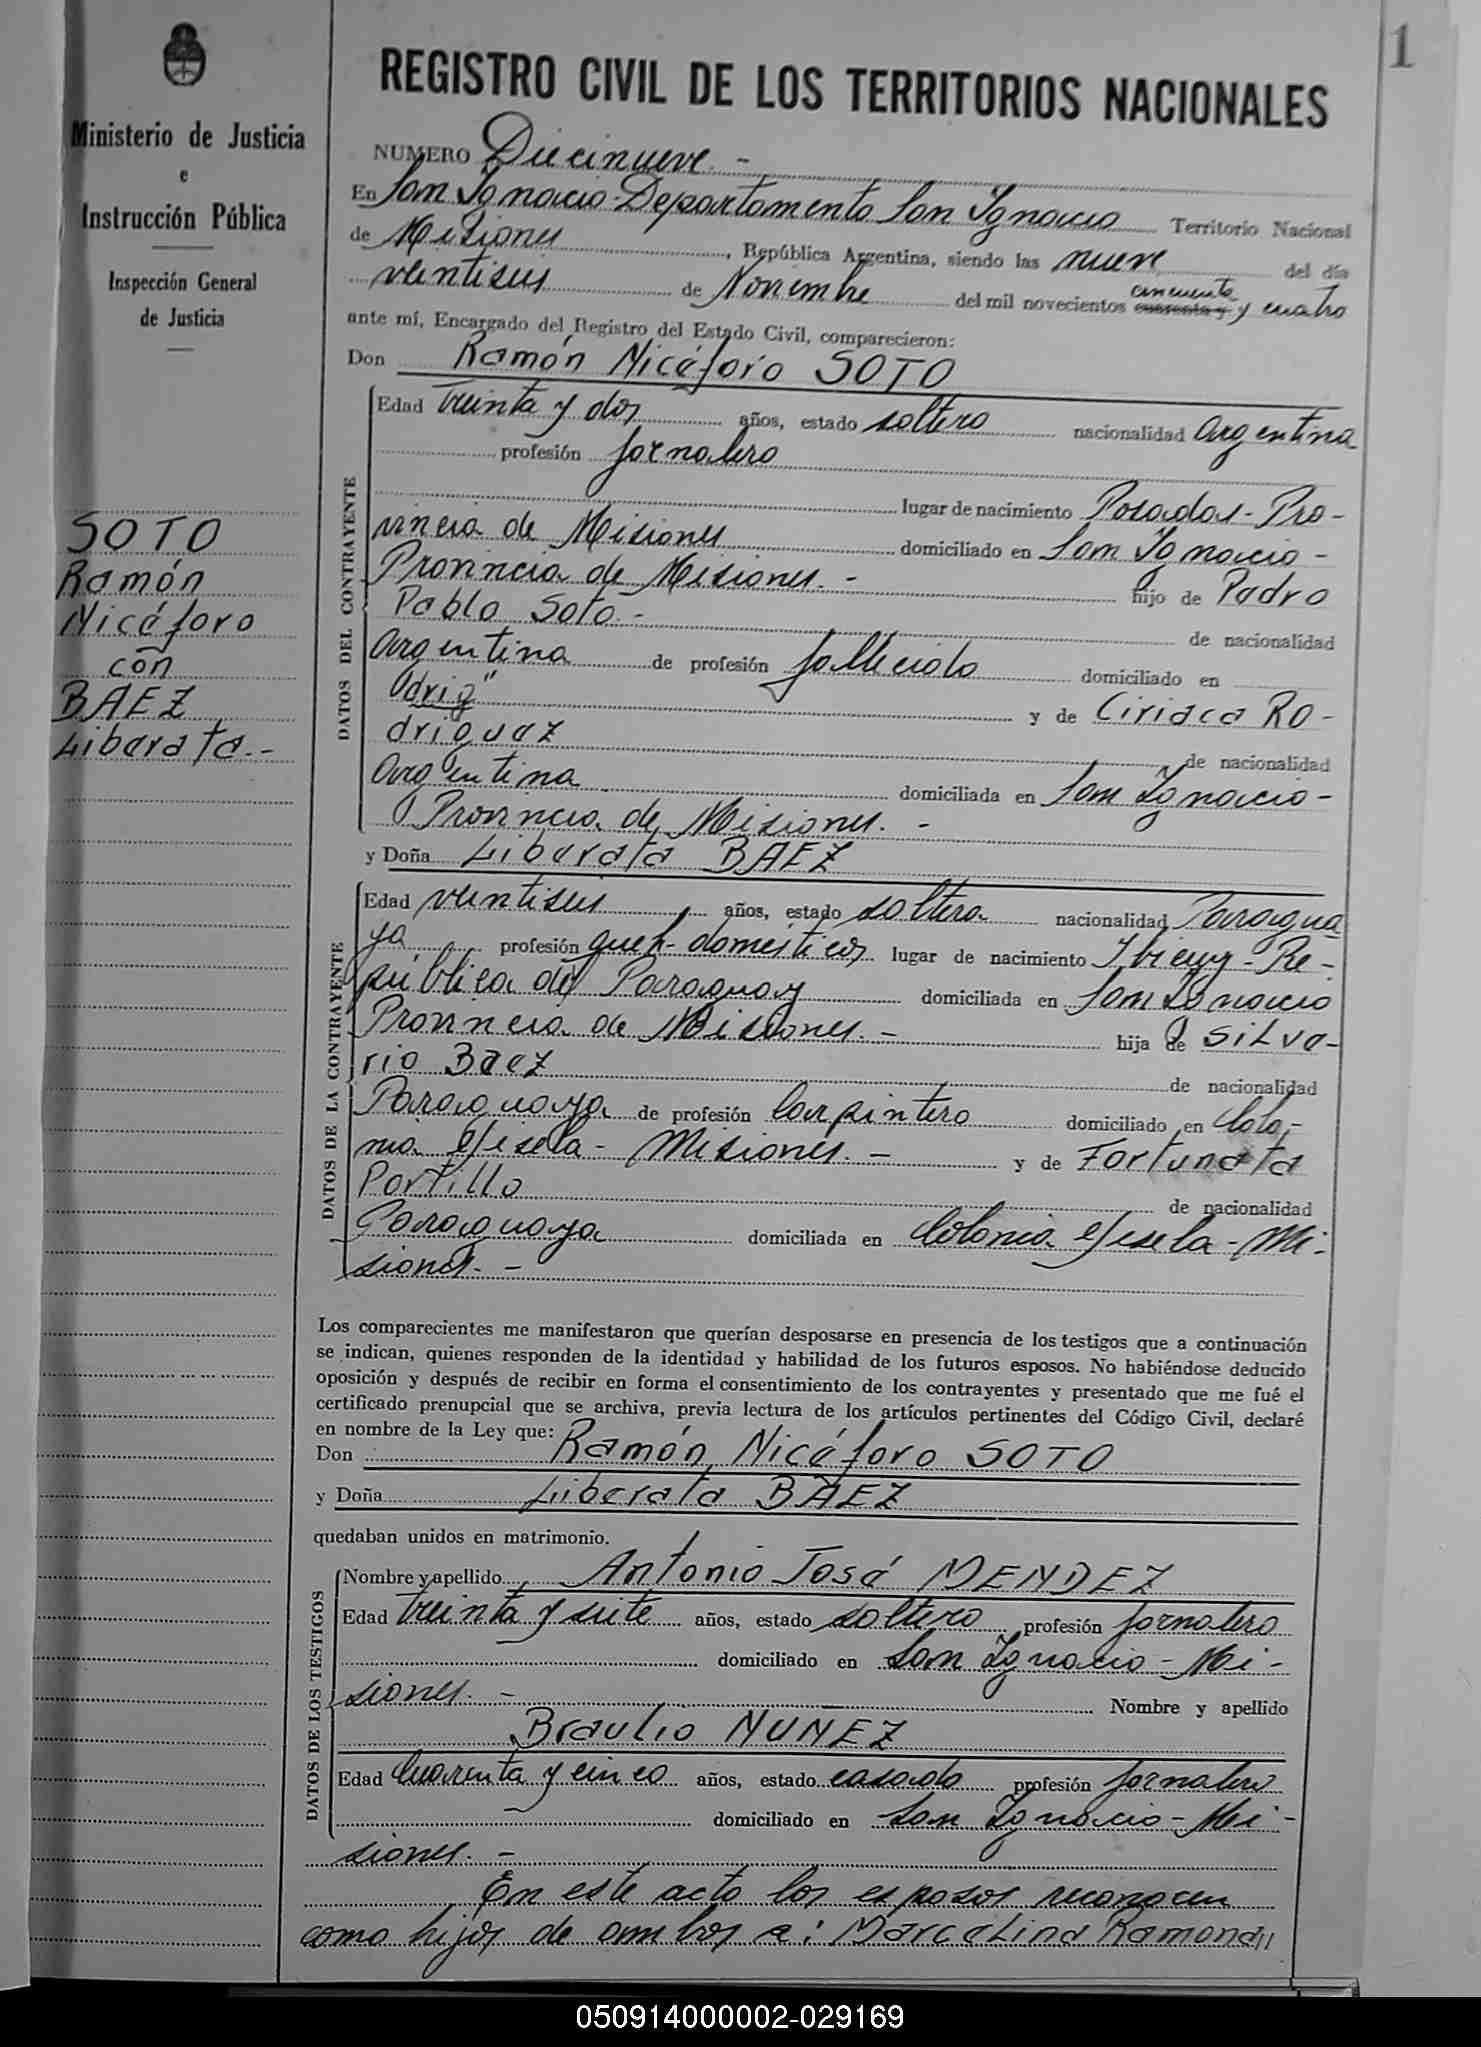 1
Ministerio de Justicia
e
Instrucción Pública
Inspección General
de Justicia
SOTO
Ramón
Nicéforo
con
BAEZ
Liberata.-
REGISTRO CIVIL DE LOS TERRITORIOS NACIONALES
NUMERO Diecinueve.-
En San Ignacio-Departamento San Ignacio Territorio Nacional
de Misiones, República Argentina, siendo las nueve del día
veintiseis de Noviembre del mil novecientos cincuenta cuarenta y y cuatro
ante mí, Encargado del Registro del Estado Civil, comparecieron:
Don Ramón Nicéforo SOTO
DATOS DEL CONTRAYENTE
Edad treinta y dos años, estado soltero nacionalidad Argentina
profesión jornalero
lugar de nacimiento Posadas-Pro-
vincia de Misiones domiciliado en San Ignacio-
Provincia de Misiones.- hijo de Pedro
Pablo Soto.- de nacionalidad
Argentina de profesión fallecido domiciliado en
"drig" y de Ciriaca RO-
driguez de nacionalidad
Argentina domiciliada en San Ignacio-
Provincia de Misiones.-
y Doña Liberata BAEZ
DATOS DE LA CONTRAYENTE
Edad veintiseis años, estado soltera nacionalidad Paragua
ya profesión queh-domésticos lugar de nacimiento Ibicuy-Re-
pública del Paraguay domiciliada en San Ignacio
Provincia de Misiones.- hija de Silve-
rio Baez de nacionalidad
Paraguaya de profesión Carpintero domiciliado en Colo-
nia Gisela-Misiones.- y de Fortunata
Portillo de nacionalidad
Paraguaya domiciliada en Colonia Gisela-Mi-
siones.-
Los comparecientes me manifestaron que querían desposarse en presencia de los testigos que a continuación
se indican, quienes responden de la identidad y habilidad de los futuros esposos. No habiéndose deducido
oposición y después de recibir en forma el consentimiento de los contrayentes y presentado que me fué el
certificado prenupcial que se archiva, previa lectura de los artículos pertinentes del Código Civil, declaré
en nombre de la Ley que:
Don Ramón Nicéforo SOTO
y Doña Liberata BAEZ
quedaban unidos en matrimonio.
DATOS DE LOS TESTIGOS
Nombre y apellido Antonio José MENDEZ
Edad treinta y siete años, estado soltero profesión jornalero
domiciliado en San Ignacio-Mi-
siones.- Nombre y apellido
Braulio NUNEZ
Edad Cuarenta y cinco años, estado casado profesión jornalero
domiciliado en San Ignacio-Mi-
siones.-
En este acto los esposos reconocen
como hijos de ambos a: Marcelina Ramona//
050914000002-029169